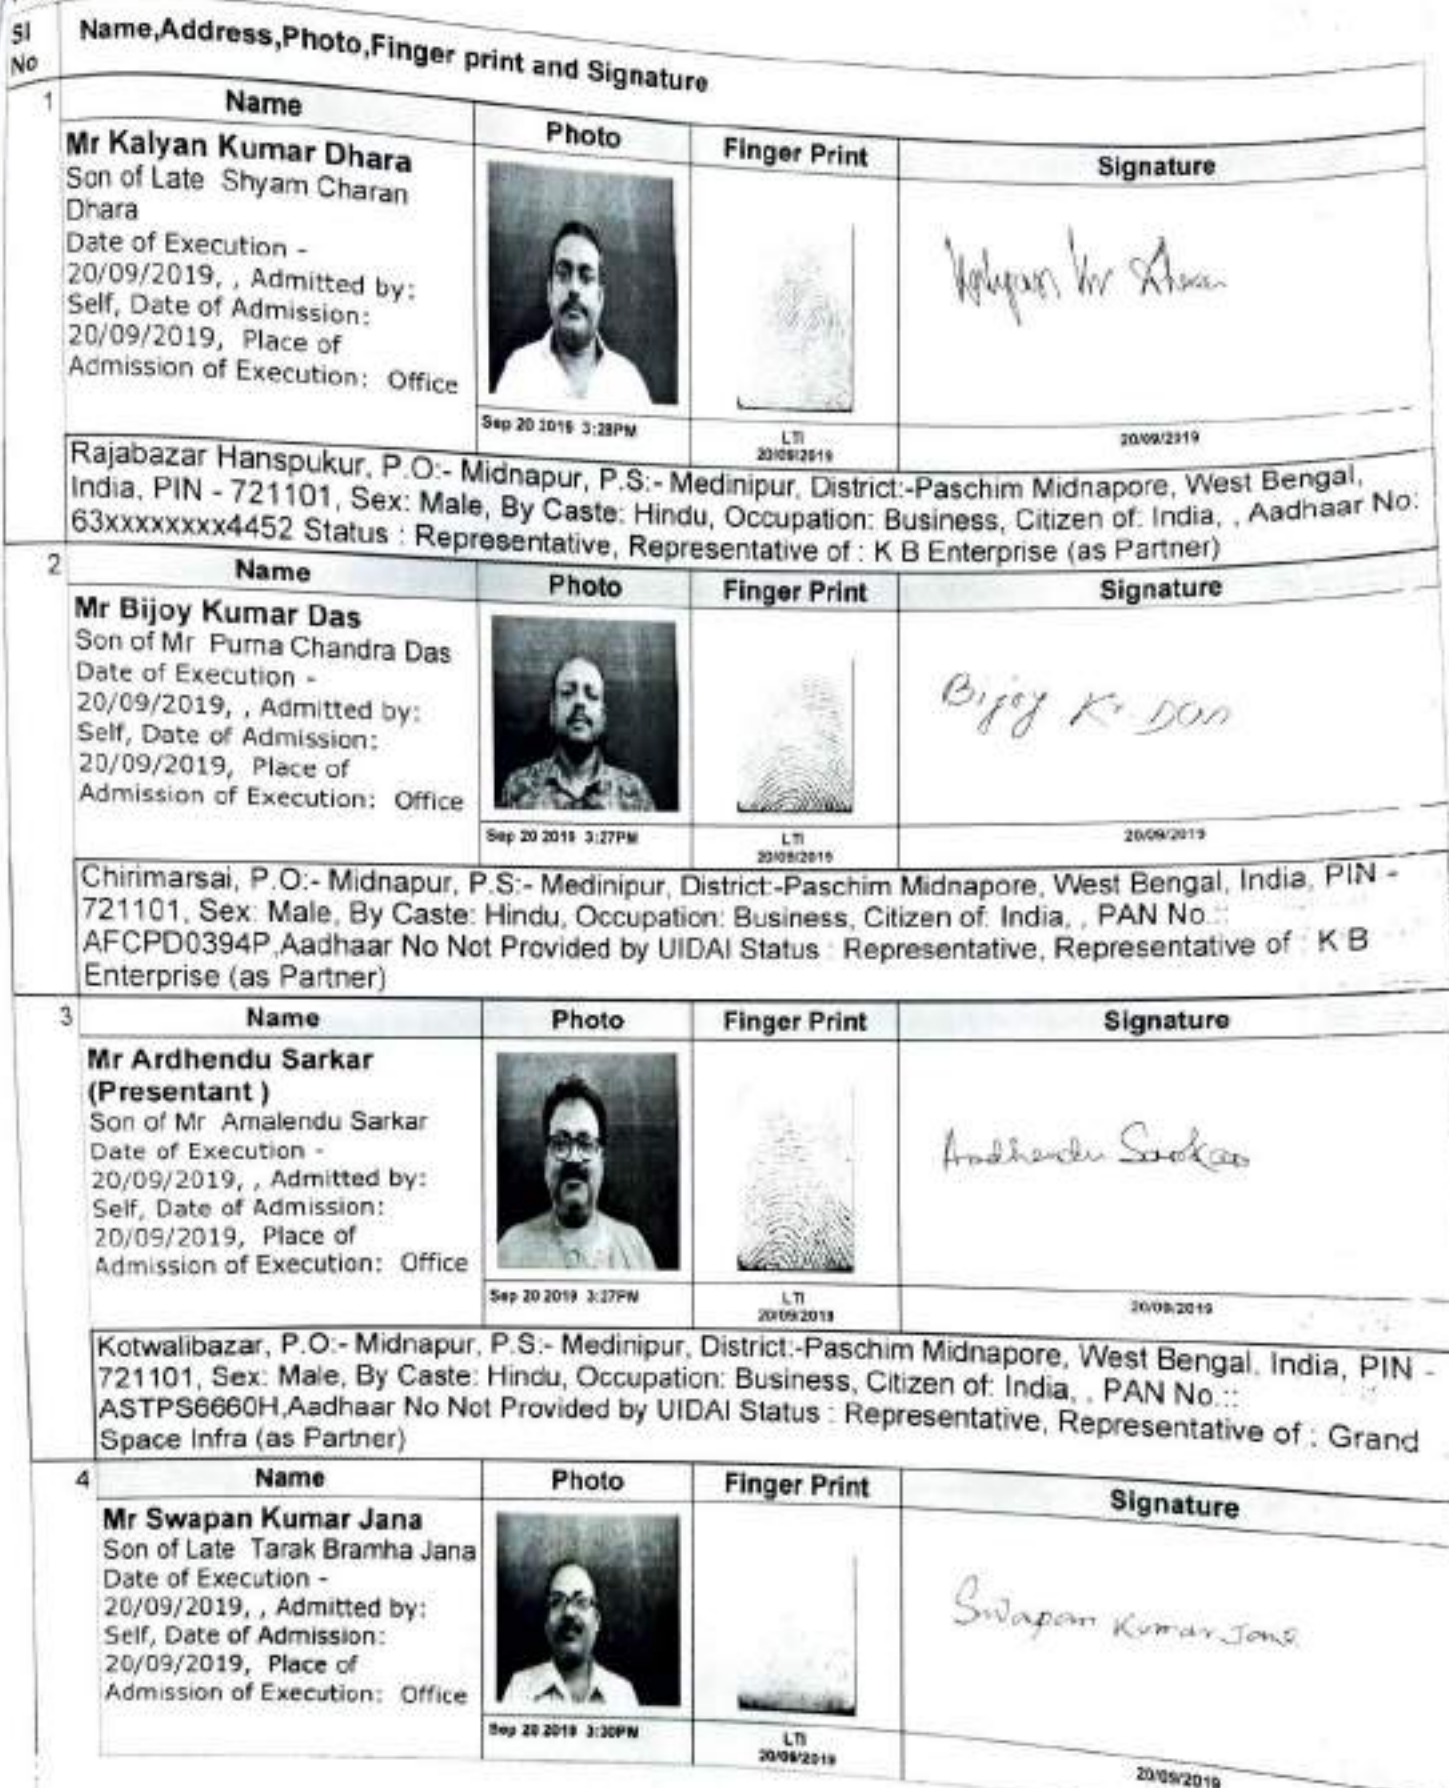 Sl
No
Name,Address,Photo,Finger print and Signature
1
Name
Photo
Finger Print
Signature
Mr Kalyan Kumar Dhara
Son of Late Shyam Charan
Dhara
Date of Execution -
20/09/2019, , Admitted by:
Self, Date of Admission:
20/09/2019, Place of
Admission of Execution: Office
Kalyan Kr Dhara
Sep 20 2019 3:28PM
LTI
20/09/2019
20/09/2019
Rajabazar Hanspukur, P.O:- Midnapur, P.S:- Medinipur, District:-Paschim Midnapore, West Bengal,
India, PIN - 721101, Sex: Male, By Caste: Hindu, Occupation: Business, Citizen of: India, , Aadhaar No:
63xxxxxxxx4452 Status : Representative, Representative of : K B Enterprise (as Partner)
2
Name
Photo
Finger Print
Signature
Mr Bijoy Kumar Das
Son of Mr Purna Chandra Das
Date of Execution -
20/09/2019, , Admitted by:
Self, Date of Admission:
20/09/2019, Place of
Admission of Execution: Office
Bijoy Kr Das
Sep 20 2019 3:27PM
LTI
20/09/2019
20/09/2019
Chirimarsai, P.O:- Midnapur, P.S:- Medinipur, District:-Paschim Midnapore, West Bengal, India, PIN -
721101, Sex: Male, By Caste: Hindu, Occupation: Business, Citizen of: India, , PAN No.::
AFCPD0394P,Aadhaar No Not Provided by UIDAI Status : Representative, Representative of : K B
Enterprise (as Partner)
3
Name
Photo
Finger Print
Signature
Mr Ardhendu Sarkar
(Presentant )
Son of Mr Amalendu Sarkar
Date of Execution -
20/09/2019, , Admitted by:
Self, Date of Admission:
20/09/2019, Place of
Admission of Execution: Office
Ardhendu Sarkar
Sep 20 2019 3:27PM
LTI
20/09/2019
20/09/2019
Kotwalibazar, P.O:- Midnapur, P.S:- Medinipur, District:-Paschim Midnapore, West Bengal, India, PIN -
721101, Sex: Male, By Caste: Hindu, Occupation: Business, Citizen of: India, , PAN No.::
ASTPS6660H,Aadhaar No Not Provided by UIDAI Status : Representative, Representative of : Grand
Space Infra (as Partner)
4
Name
Photo
Finger Print
Signature
Mr Swapan Kumar Jana
Son of Late Tarak Bramha Jana
Date of Execution -
20/09/2019, , Admitted by:
Self, Date of Admission:
20/09/2019, Place of
Admission of Execution: Office
Swapan Kumar Jana
Sep 20 2019 3:30PM
LTI
20/09/2019
20/09/2019